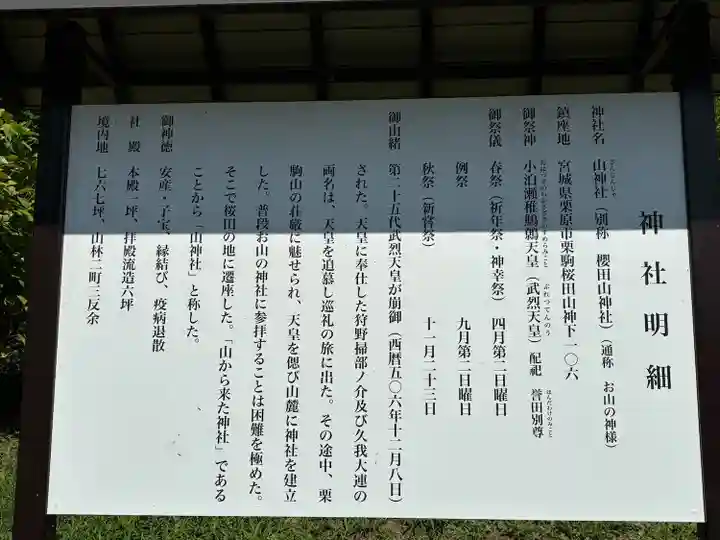 神社明細
神社名 山神社（別称 櫻田山神社）（通称 お山の神様）
さんじんじゃ
鎮座地 宮城県栗原市栗駒桜田山神下一〇六
御祭神 小泊瀬稚鷦鷯天皇（武烈天皇）配祀 誉田別尊
おはつせのわかさざきのすめらみこと ぶれつてんのう ほんだわけのみこと
御祭儀 春祭（祈年祭・神幸祭） 四月第二日曜日
例祭 九月第二日曜日
秋祭（新嘗祭） 十一月二十三日
御由緒 第二十五代武烈天皇が崩御（西暦五〇六年十二月八日）
された。天皇に奉仕した狩野掃部ノ介及び久我大連の
両名は、天皇を追慕し巡礼の旅に出た。その途中、栗
駒山の荘厳に魅せられ、天皇を偲び山麓に神社を建立
した。普段お山の神社に参拝することは困難を極めた。
そこで桜田の地に遷座した。「山から来た神社」である
ことから「山神社」と称した。
御神徳 安産・子宝、縁結び、疫病退散
社殿 本殿一坪、拝殿流造六坪
境内地 七六七坪、山林二町三反余